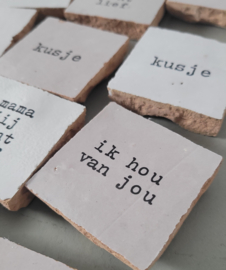 lief
kusje
kusje
mama
ik hou
van jou